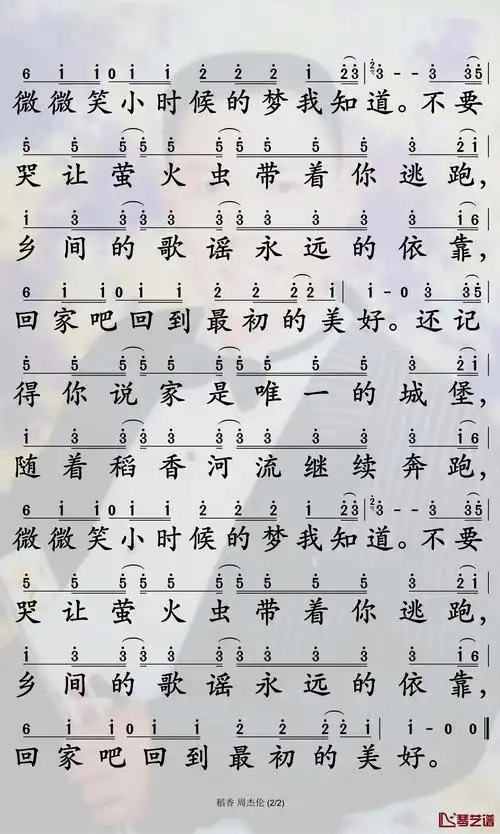 6 i i 0 i i 2 2 2 2 i 2 3 | 2 3 - - 3 3 5 |
微微笑小时候的梦我知道。不要
5 5 5 5 5 5 5 5 5 5 5 2 i |
哭让萤火虫带着你逃跑，
i 3 3 3 3 3 3 3 3 3 3 i 6 |
乡间的歌谣永远的依靠，
6 i i 0 i i 2 2 2 2 2 i | i - 0 3 3 5 |
回家吧回到最初的美好。还记
5 5 5 5 5 5 5 5 5 5 5 2 i |
得你说家是唯一的城堡，
i 3 3 3 3 3 3 3 3 3 3 i 6 |
随着稻香河流继续奔跑，
6 i i 0 i i 2 2 2 2 i 2 3 | 2 3 - - 3 3 5 |
微微笑小时候的梦我知道。不要
5 5 5 5 5 5 5 5 5 5 5 2 i |
哭让萤火虫带着你逃跑，
i 3 3 3 3 3 3 3 3 3 3 i 6 |
乡间的歌谣永远的依靠，
6 i i 0 i i 2 2 2 2 2 i | i - 0 0 ‖
回家吧回到最初的美好。
稻香 周杰伦 (2/2)
琴艺谱